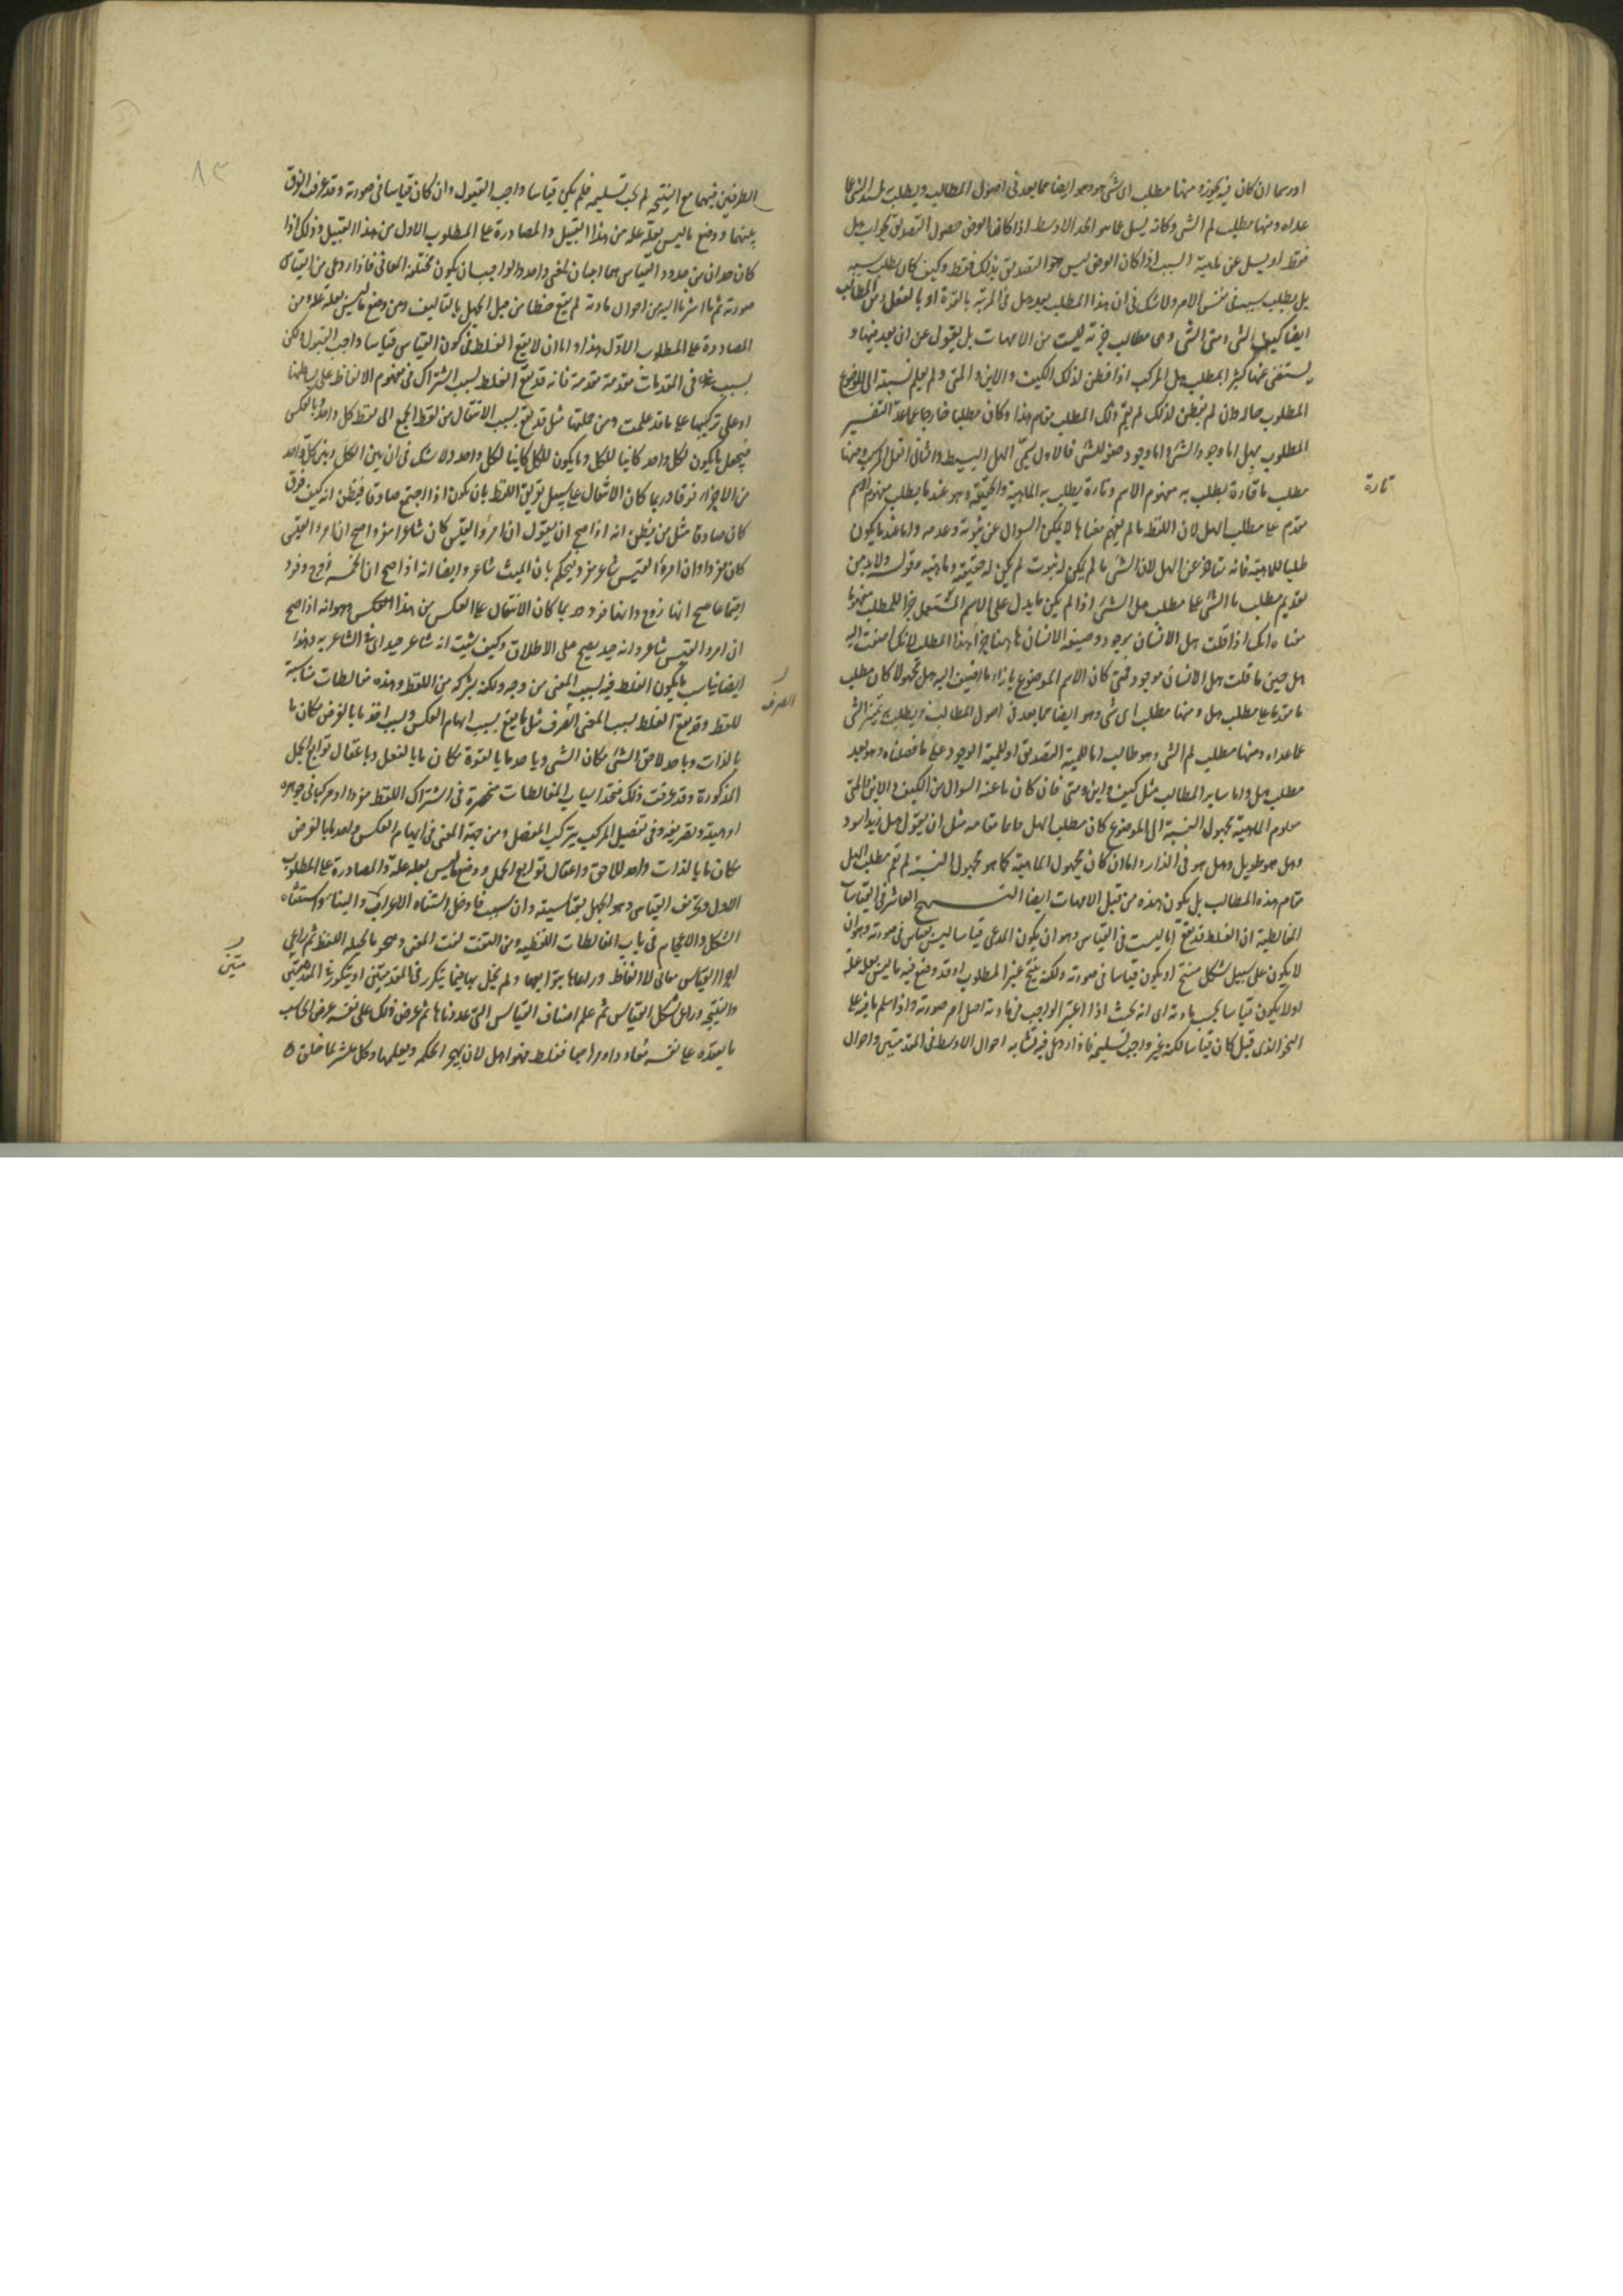 او رسما ان كان فيه تجوز ومنها مطلب اى شئ هو وهو ايضا مما يعد فى اصول المطالب ويطلب به تميز الشئ عما
عداه ومنها مطلب لم الشئ وكانه يسل عما هو الحد الاوسط اذا كان الغرض حصول التصديق بجواب هل
فقط او يسل عن ماهية السبب اذا كان الغرض ليس هو التصديق بذلك فقط وكيف كان بل يطلب سببه
بل يطلب سببه فى نفس الامر ولا شك فى ان هذا المطلب بعد هل فى المرتبة بالقوة او بالفعل ومن المطالب
ايضا كيف الشئ واين الشئ ومتى الشئ وهى مطالب جزئية ليست من الامهات بل ينزل عن ان يعد فيها و
يستغنى عنها كثيرا بمطلب هل المركب اذا فطن لذلك الكيف والاين والمتى ولم يعلم نسبته الى الموضوع
المطلوب حاله وان لم يفطن لذلك لم يقم ذلك المطلب مقام هذا وكان مطلبا خارجا عما عد التفسير
المطلوب بهل اما وجود الشئ واما وجود صفة للشئ فالاول يسمى الهل البسيط والثانى الهل المركب ومنها
مطلب ما فتارة يطلب به مفهوم الاسم وتارة يطلب به الماهية والحقيقة وهو عند ما يطلب مفهوم الاسم
مقدم على مطلب الهل لان اللفظ ما لم يفهم معناها لا يمكن السوال عن ثبوته وعدمه واما عند ما يكون
طلبا للماهية فانه متاخر عن الهل لان الشئ ما لم يكن له ثبوت لم يكن له حقيقة وماهية قوله ولا بد من
تقديم مطلب ما الشئ على مطلب هل الشئ اذا لم يكن ما يدل على الاسم المستعمل جزا للمطلب مفهوما
معناه انك اذا قلت هل الانسان موجود وصيغة الانسان هاهنا جزا لهذا المطلب لانك اضفت اليه
هل حين ما قلت هل الانسان موجود فمتى كان الاسم الموضوع بازاء ما اضيف اليه هل مجهولا كان مطلب
ما مقدما على مطلب هل ومنها مطلب اى شئ وهو ايضا مما يعد فى اصول المطالب ويطلب به تميز الشئ
عما عداه ومنها مطلب لم الشئ وهو طالب اما للمية التصديق او للمية الوجود على ما فصلناه وهو بعد
مطلب هل واما ساير المطالب مثل كيف واين ومتى فان كان ما عنه السوال من الكيف والاين والمتى
معلوم الماهية مجهول النسبة الى الموضوع كان مطلب الهل قائما مقامه مثل ان يقول هل زيد اسود
وهل هو طويل وهل هو فى الدار واما ان كان مجهول الماهية كما هو مجهول النسبة لم يقم مطلب الهل
مقام هذه المطالب بل يكون هذه من قبيل الامهات ايضا النهج العاشر فى القياسات
المغالطية ان الغلط قد يقع اما لسبب فى القياس وهو ان يكون المدعى قياسا ليس بقياس فى صورته وهو ان
لا يكون على سبيل شكل منتج او يكون قياسا فى صورته ولكنه ينتج غير المطلوب او قد وضع فيه ما ليس بعلة علة
او لا يكون قياسا بحسب مادته اى انه بحيث اذا اعتبر الواجب فى مادته اختل امر صورته واذا سلم ما فيه على
النحو الذى قيل كان قياسا لكنه غير واجب تسليمه فاذا روعى فيه تشابه احوال الاوسط فى المقدمتين واحوال
تارة
الطرفين فيهما مع النتيجة لم يجب تسليمه فلم يكن قياسا واجب القبول وان كان قياسا فى صورته وقد عرفت الفرق
بينهما ووضع ما ليس بعلة علة من هذا القبيل والمصادرة على المطلوب الاول من هذا القبيل وذلك اذا
كان حدان من حدود القياس هما اسمان لمعنى واحد والواجب ان يكون مختلفة المعانى فاذا روعى من القياس
صورته ثم ما اشرنا اليه من احوال مادته لم يقع خطا من قبل الجهل بالتاليف ومن وضع ما ليس بعلة علة ومن
المصادرة على المطلوب الاول هذا واما ان لا يقع الغلط فى كون القياس قياسا واجب القبول ولكن
بسبب فى المقدمات مقدمة مقدمة فانه قد يقع الغلط بسبب اشتراك فى مفهوم الالفاظ على بساطتها
او على تركيبها على ما قد علمت ومن جملتها مثل قد يقع بسبب الانتقال من لفظ الجمع الى لفظ كل واحد وبالعكس
فيجعل ما يكون لكل واحد كائنا للكل وما يكون للكل كائنا لكل واحد ولا شك فى ان بين الكل وبين كل واحد
من الاجزاء فرقا وربما كان الانتقال على سبيل تفريق اللفظ بان يكون اذا اجتمع صادقا فيظن انه كيف فرق
كان صادقا مثل من يظن انه اذا صح ان يقول ان امرؤ القيس كان شاعرا مفردا صح ان امرؤ القيس
كان مفردا وان امرؤ القيس شاعر مفرد فيحكم بان الميت شاعر وايضا انه اذا صح ان الخمسة زوج وفرد
اجتماعا صح انها زوج وانها فرد وربما كان الانتقال على العكس من هذا العكس وهو انه اذا صح
ان امرؤ القيس شاعر وانه جيد يصح على الاطلاق وكيف شئت انه شاعر جيد اى فى الشاعرية وهذا
ايضا يناسب ما يكون الغلط فيه بسبب المعنى من وجه ولكنه بشركة من اللفظ وهذه مغالطات مناسبة
للفظ وقد يقع الغلط بسبب المعنى الصرف مثل ما يقع بسبب ايهام العكس وبسبب اخذ ما بالعرض مكان ما
بالذات وباخذ لاحق الشئ مكان الشئ وباخذ ما بالقوة مكان ما بالفعل وباغفال توابع الحمل
المذكورة وقد عرفت ذلك فتجد اسباب المغالطات منحصرة فى اشتراك اللفظ مفردا او مركبا فى جوهره
او هيئته وتصريفه وفى تفصيل المركب وتركيب المفصل ومن جهة المعنى فى ايهام العكس واخذ ما بالعرض
مكان ما بالذات واخذ اللاحق واغفال توابع الحمل ووضع ما ليس بعلة علة والمصادرة على المطلوب
الاول وتحريف القياس وهو الجهل بقياسيته وان شئت فادخل اشتباه الاعراب والبناء واشتباه
الشكل والاعجام فى باب المغالطات اللفظية ومن التفت لفت المعنى وهجر ما يخيله اللفظ ثم راعى
اجزا القياس معانى لا الفاظا وراعاها بتوابعها ولم يخل بها فيما يتكرر فى المقدمتين او يتكرر فى المقدمتين
والنتيجة وراعى شكل القياس ثم علم اصناف القياس التى عددناها ثم عرض ذلك على نفسه عرض الحاسب
ما يعقده على نفسه معاودا ومراجعا فغلط فهو اهل لان يهجر الحكمة وتعلمها وكل ميسر لما خلق له
الصرف
متين